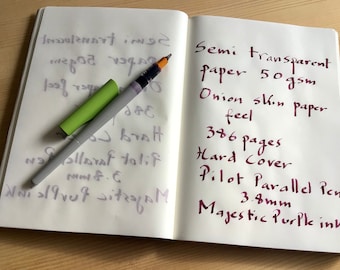 Semi transparent
paper 50gsm
Onion skin paper
feel
386 pages
Hard Cover
Pilot Parallel Pen
3.8mm
Majestic Purple ink